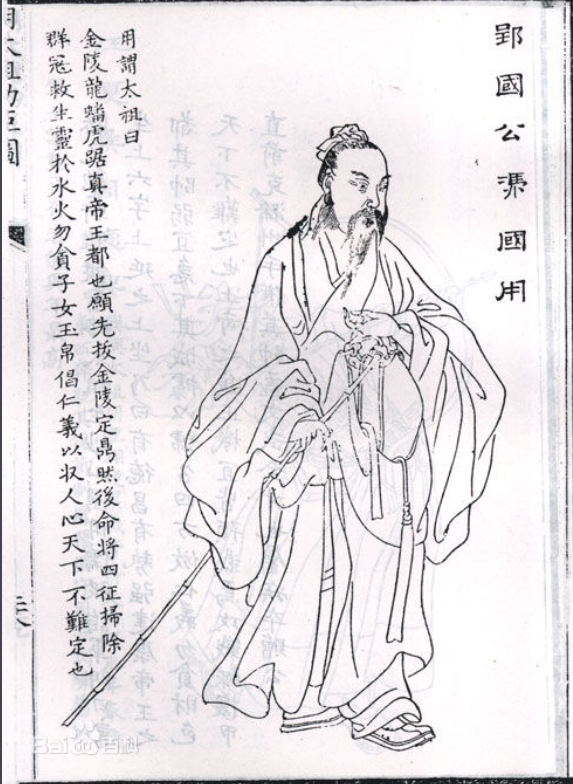 郢國公馮國用
用謂太祖曰
金陵龍蟠虎踞真帝王都也願先拔金陵定鼎然後命將四征掃除
群寇救生靈於水火勿貪子女玉帛倡仁義以収人心天下不難定也
太祖功臣圖
Baidu百科